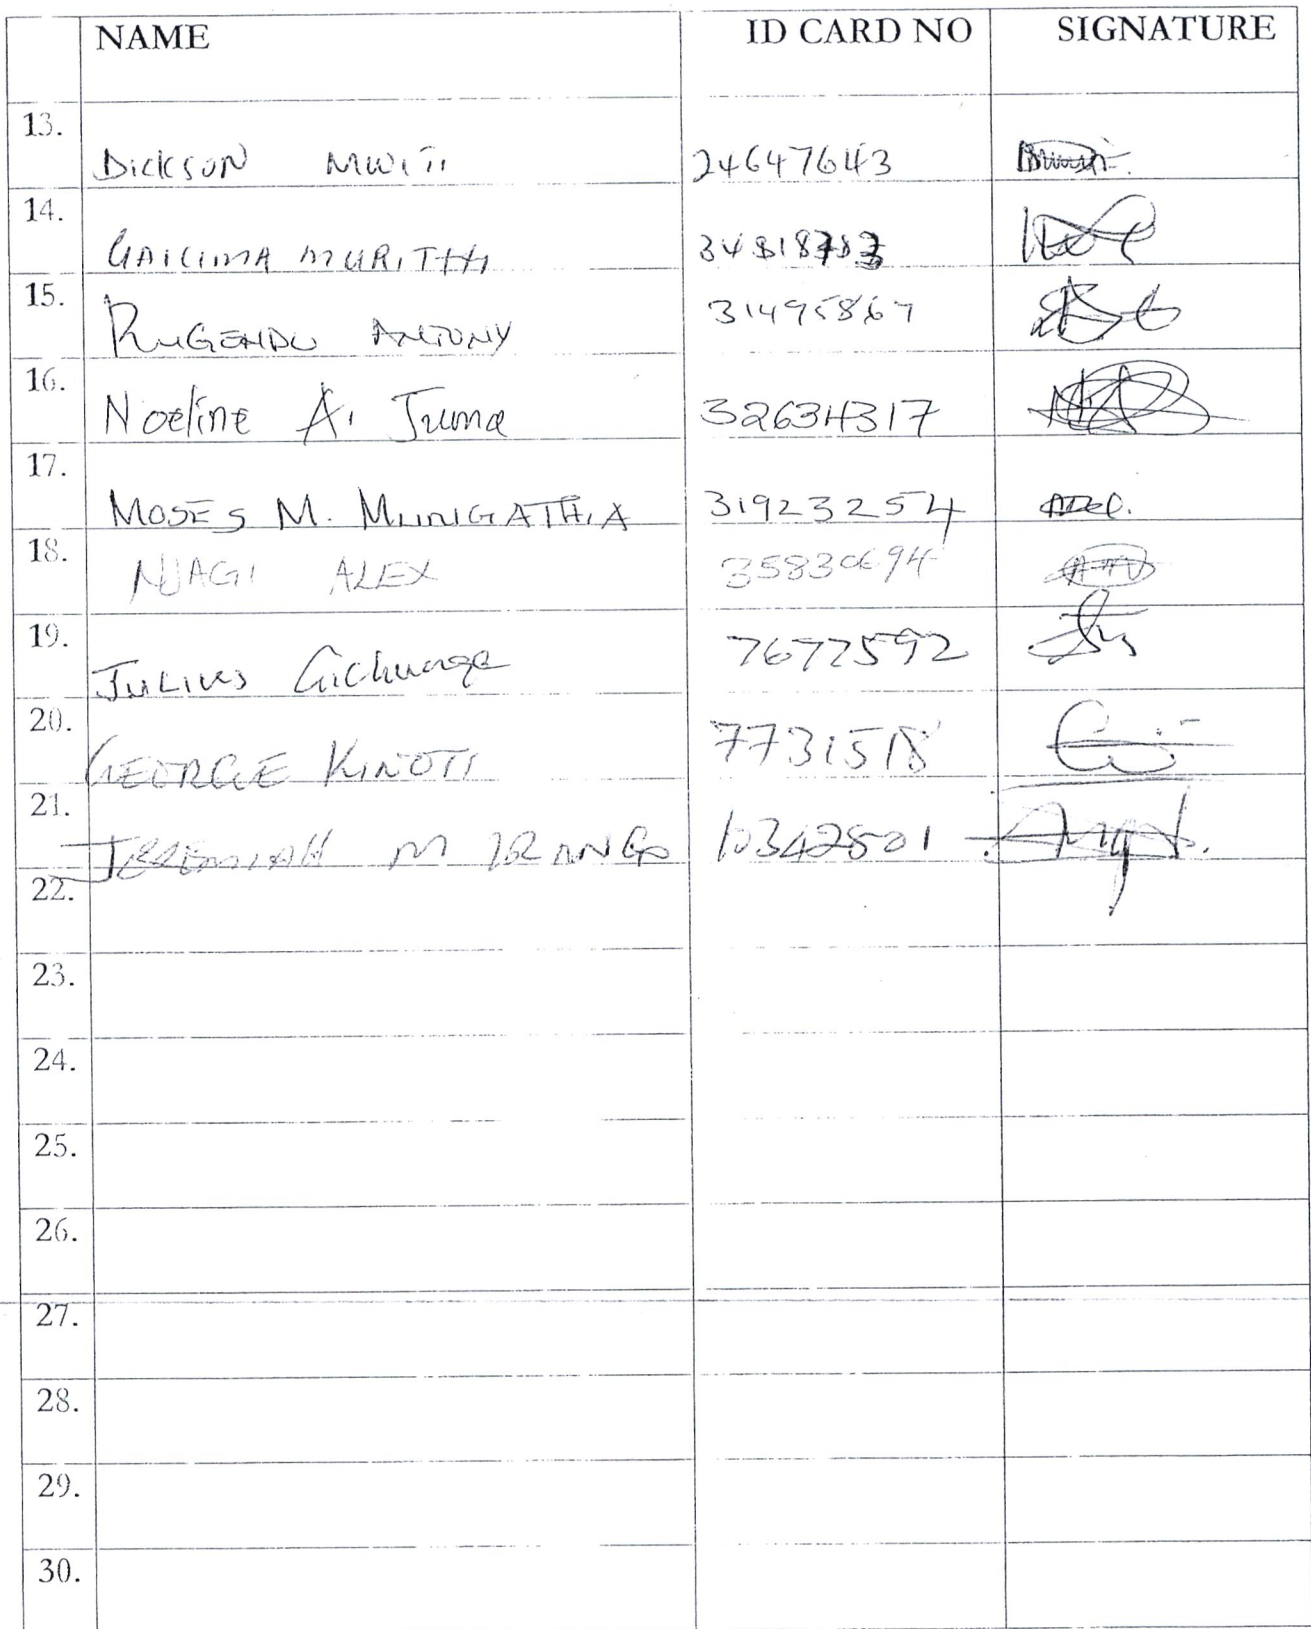 NAME ID CARD NO SIGNATURE
13. Dickson Mwiti 24647643
14. MURITHI
15. RUGENDO ANTONY 31495867
16. Noeline A. Juma 32634317
17. MOSES M. MUNGATHIA 31923254
18. NJAGI ALEX
19. Julius Gichunge 7677592
20. GEORGE KINOTI 7731518
21. JEREMIAH M IRANGO 10342801
22.
23.
24.
25.
26.
27.
28.
29.
30.